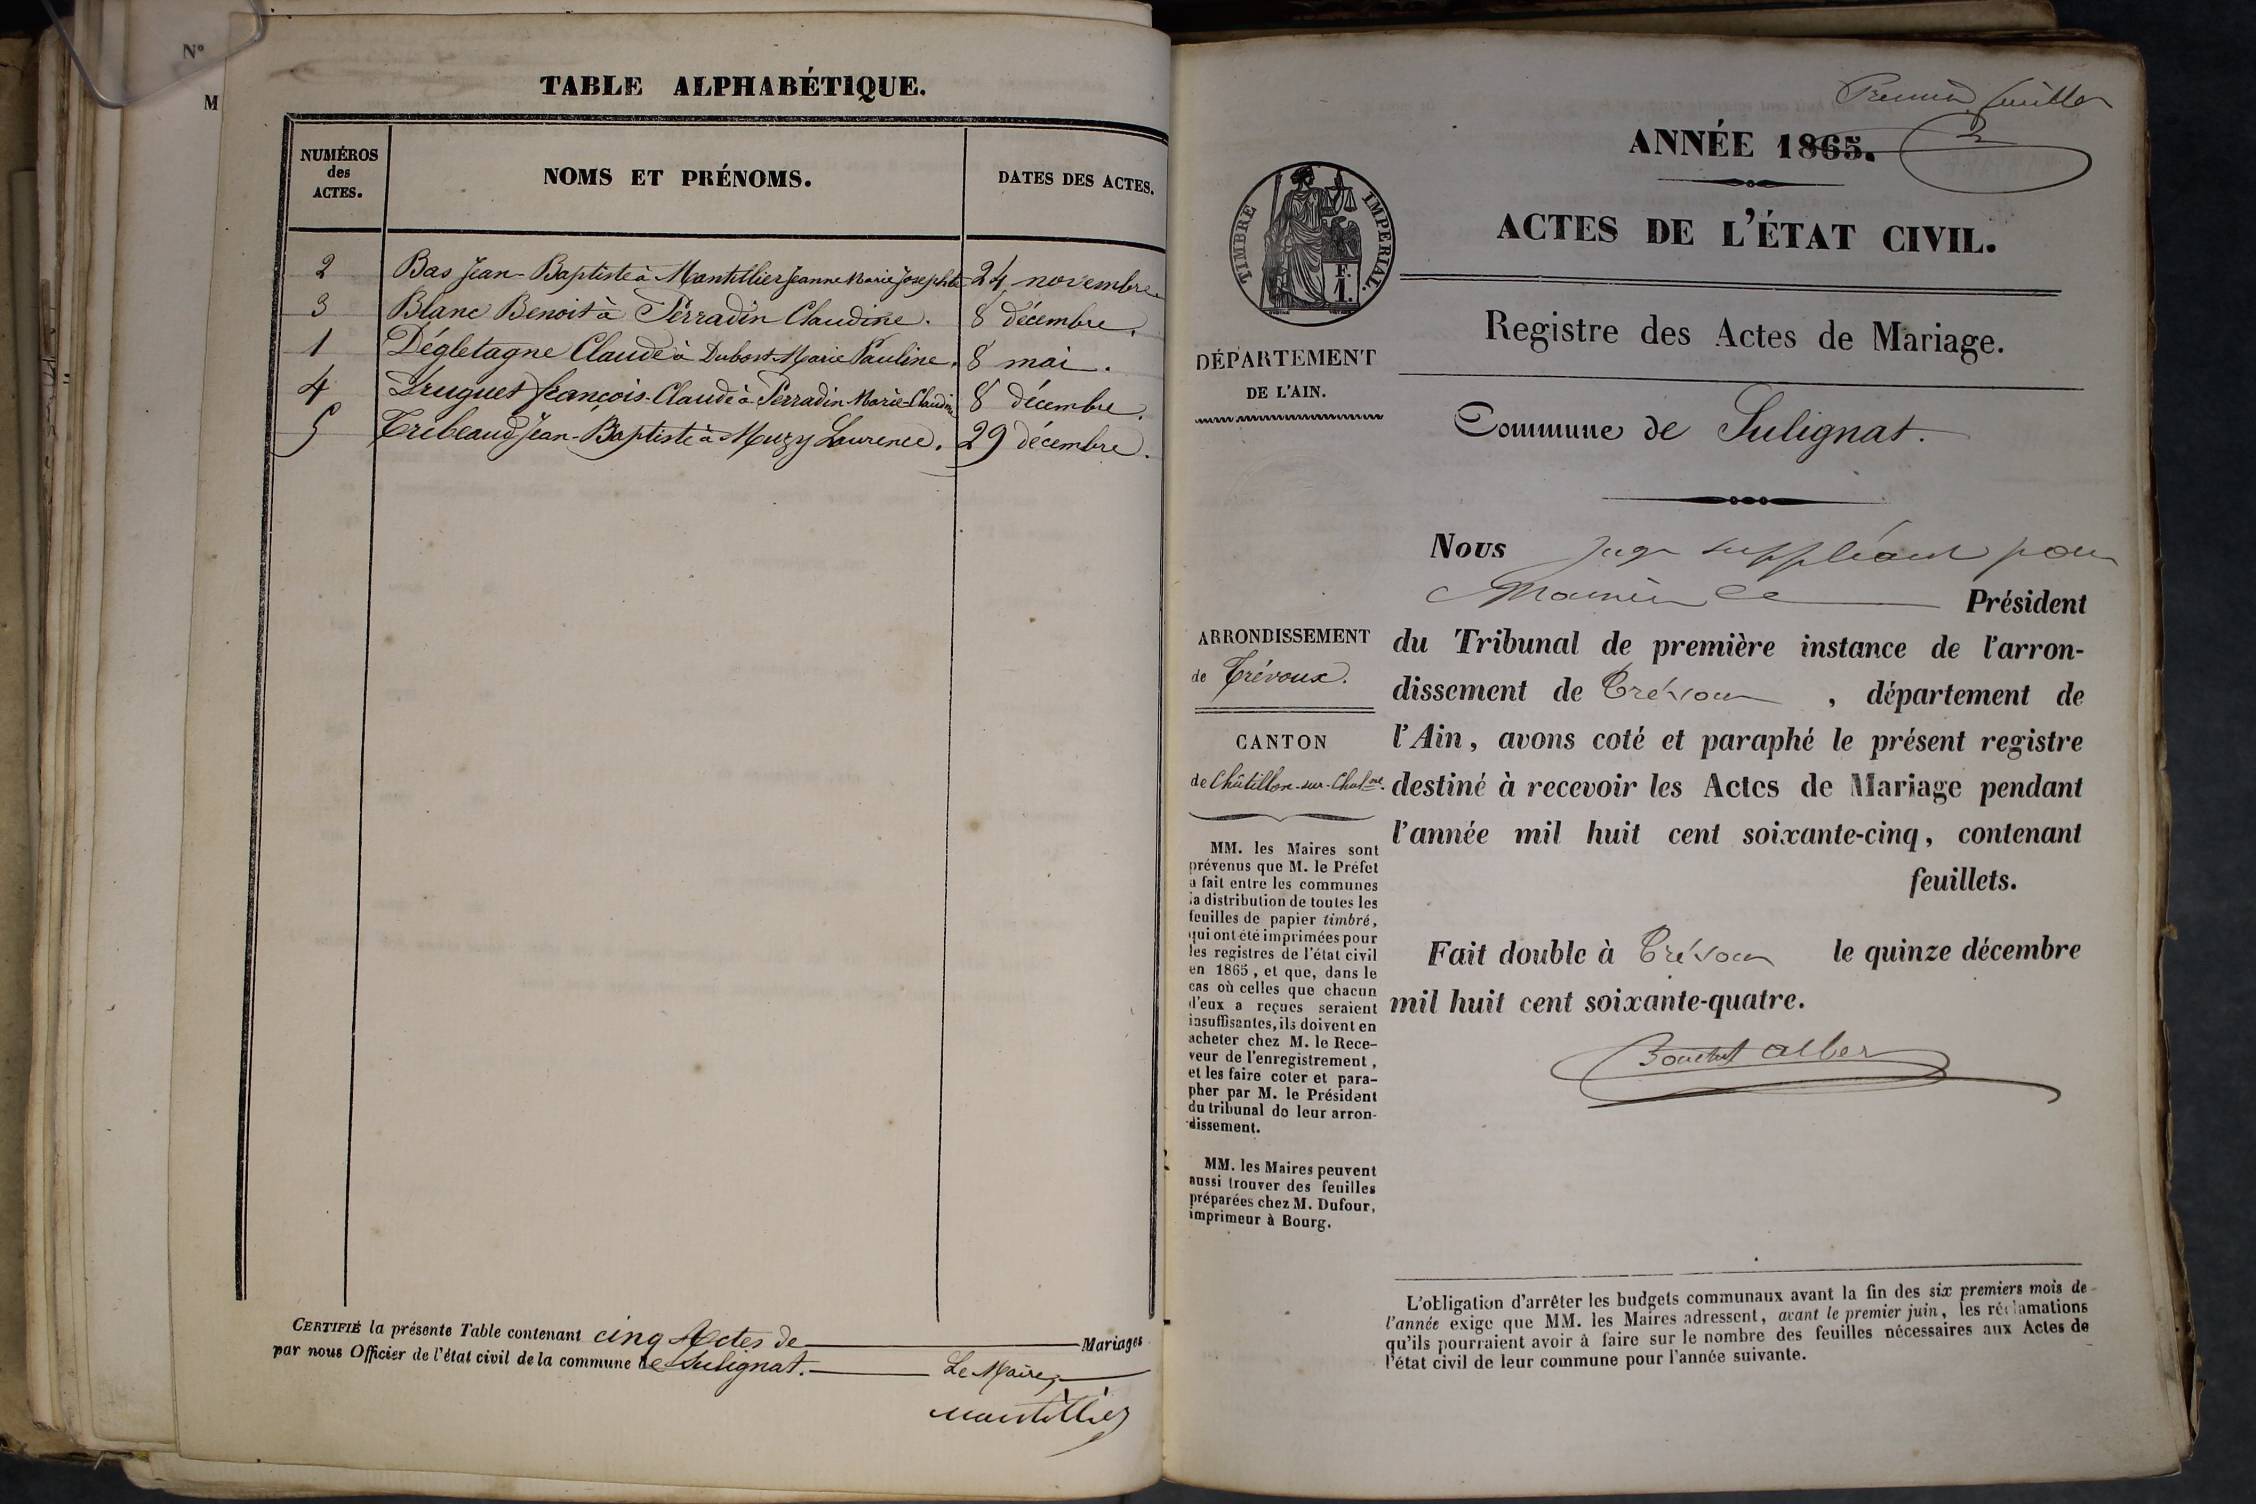 N°
M
TABLE ALPHABÉTIQUE.
NUMÉROS
des
ACTES.
NOMS ET PRÉNOMS.
DATES DES ACTES.
2 Bas Jean-Baptiste à Mantillier Jeanne Marie Josephte 24 novembre
3 Blanc Benoit à Perradin Claudine. 8 décembre.
1 Dégletagne Claude à Dubost Marie Pauline. 8 mai.
4 Druguet François-Claude à Perradin Marie-Claudine 8 décembre.
5 Trebeaud Jean-Baptiste à Muzy Laurence. 29 décembre.
CERTIFIÉ la présente Table contenant cinq Actes de Mariages
par nous Officier de l'état civil de la commune de Sulignat.
Le Maire,
Mantillier
Premier feuillet
ANNÉE 1865.
ACTES DE L'ÉTAT CIVIL.
TIMBRE IMPÉRIAL.
F.
1.
Registre des Actes de Mariage.
DÉPARTEMENT
DE L'AIN.
Commune de Sulignat.
Nous Juge suppléant pour
Monsieur le Président
du Tribunal de première instance de l'arron-
dissement de Trévoux, département de
l'Ain, avons coté et paraphé le présent registre
destiné à recevoir les Actes de Mariage pendant
l'année mil huit cent soixante-cinq, contenant
feuillets.
Fait double à Trévoux le quinze décembre
mil huit cent soixante-quatre.
ARRONDISSEMENT
de Trévoux.
CANTON
de Châtillon-sur-Chal.ne
MM. les Maires sont
prévenus que M. le Préfet
a fait entre les communes
la distribution de toutes les
feuilles de papier timbré,
qui ont été imprimées pour
les registres de l'état civil
en 1865, et que, dans le
cas où celles que chacun
d'eux a reçues seraient
insuffisantes, ils doivent en
acheter chez M. le Rece-
veur de l'enregistrement,
et les faire coter et para-
pher par M. le Président
du tribunal de leur arron-
dissement.
MM. les Maires peuvent
aussi trouver des feuilles
préparées chez M. Dufour,
imprimeur à Bourg.
L'obligation d'arrêter les budgets communaux avant la fin des six premiers mois de
l'année exige que MM. les Maires adressent, avant le premier juin, les réclamations
qu'ils pourraient avoir à faire sur le nombre des feuilles nécessaires aux Actes de
l'état civil de leur commune pour l'année suivante.